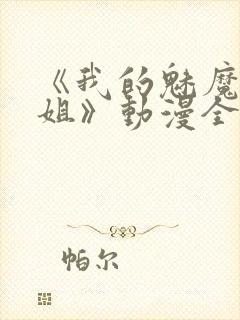 《我的魅魔
姐》動漫全
帕尔